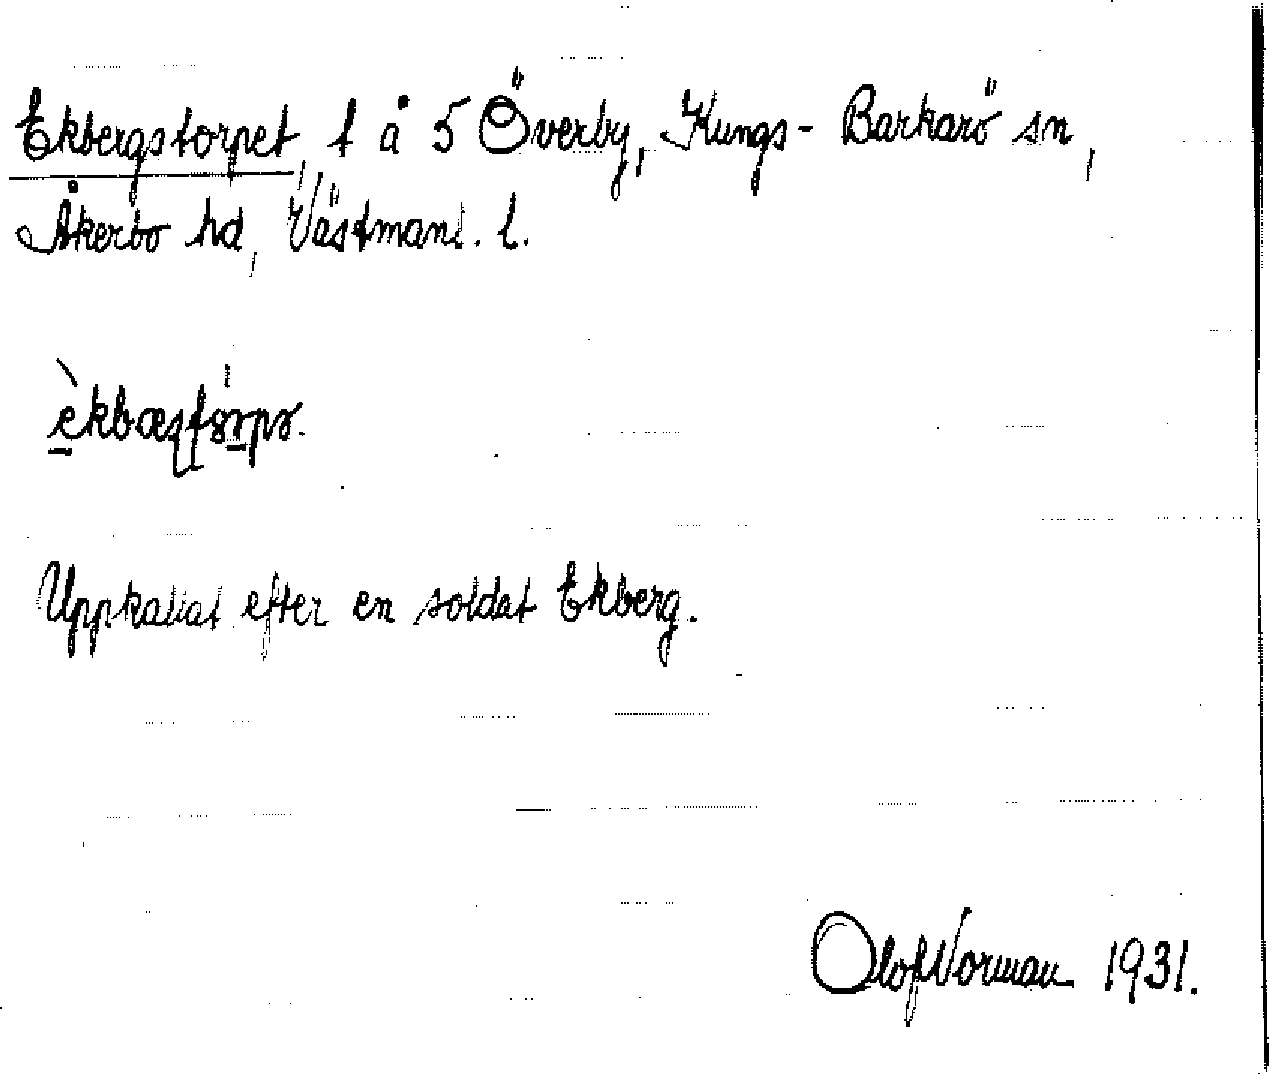 Ekbergstorpet, t å 5 Överby, Kungs-Barkarö sn,
Åkerbo hd, Västmanl. l.
Uppkallat efter en soldat Ekberg.
Olof Norman 1931.